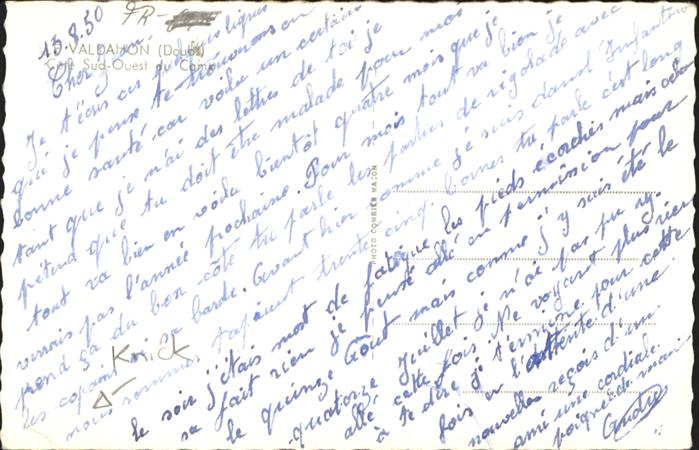 FR
13.8.50
VALDAHON (Doubs)
Côté Sud-Ouest du Camp
Cher
Je t'écris ces quelques lignes
qui je pense te trouverons en
bonne santé car voila un certain
tant que je n'ai des lettres de toi je
pretend que tu doit être malade pour moi
tout va bien en voila bientot quatre mois que je
verrais pas l'année prochaine. Pour mois tout va bien je
prend ça du bon côté tu parle les parties de rigolade avec
les copains sa barde. Avant hier comme je suis dans l'Infanterie
nous sommes tapaient trente cinq bornes tu parle c'est long
le soir j'étais mort de fatigue les pieds écorchés mais cela
sa fait rien je pensé allé en permission pour
le quinze Août mais comme j'y suis été le
quatorze Juillet je n'ai pas pu ry
allé cette fois. Ne voyant plus rien
à te dire je t'ennime pour cette
fois en l'attente d'une
nouvelles reçois d'un
ami une cordiale
poignée de main
André
Knick
PHOTO COMBIER MACON